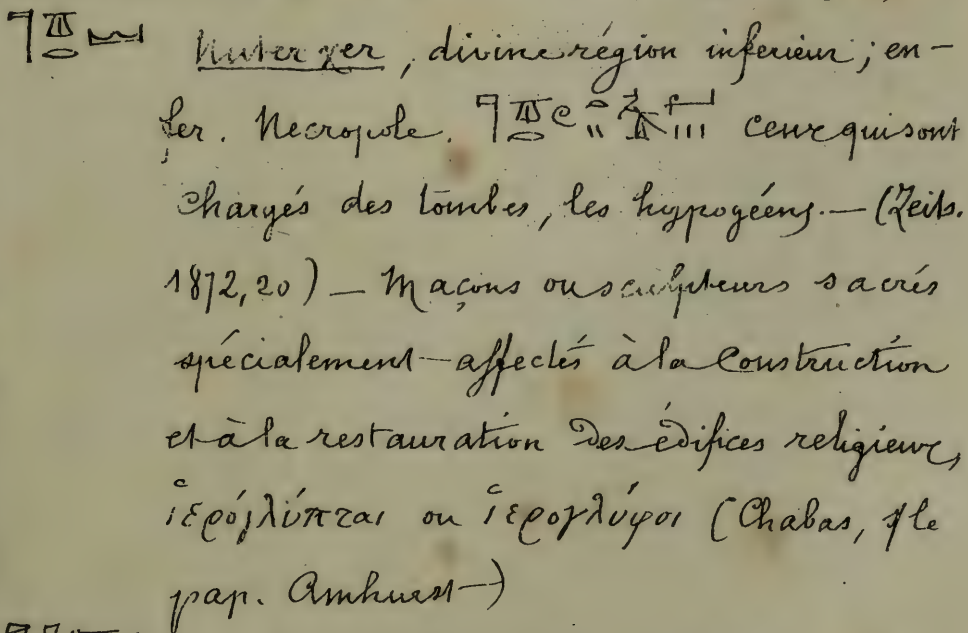 Nuter χer, divine région inferieur; en-
fer. Necropole. ceux qui sont
chargés des tombes, les hypogéens. — (Zeits.
1872, 20) — Maçons ou sculpteurs sacrés
spécialement affectés à la Construction
et à la restauration Des édifices religieux,
ἱερόγλύπται ou ἱερογλύφοι (Chabas, le
pap. Amhurst —)